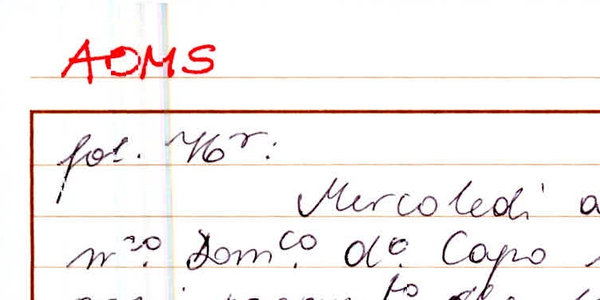 AOMS
fol. 76r:
Mercoledì a
m.ro Dom.co d.o Capo